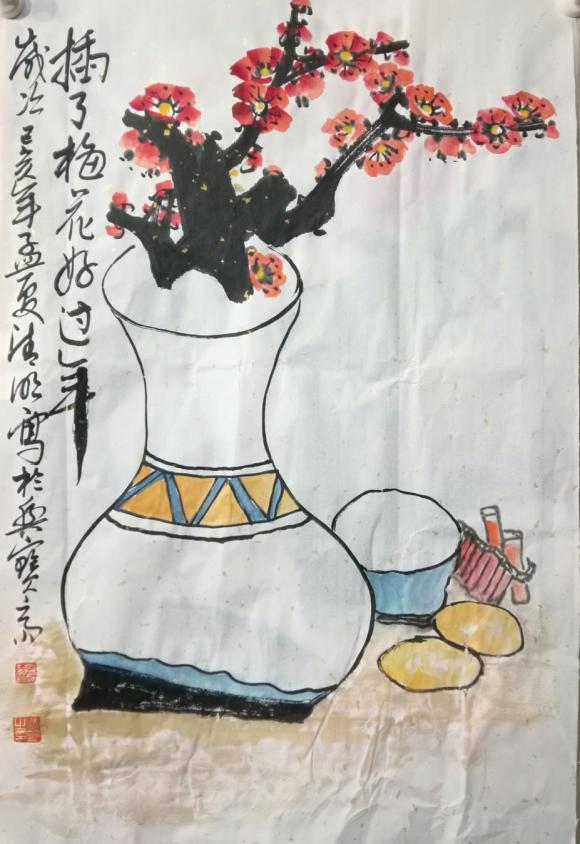 插了梅花好过年
岁次己亥年孟夏清明写於兴宝斋